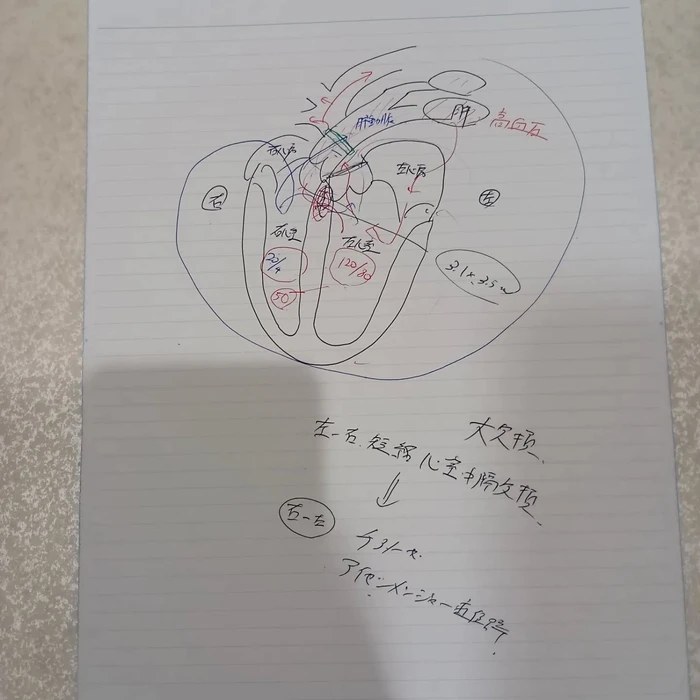 肺
高血圧
肺動脈
右心房
左心房
右
左
右心室
左心室
20/4
120/80
50
大欠損
左-右 短絡 心室中隔欠損
右-左
チアノーゼ
アイゼンメンジャー症候群